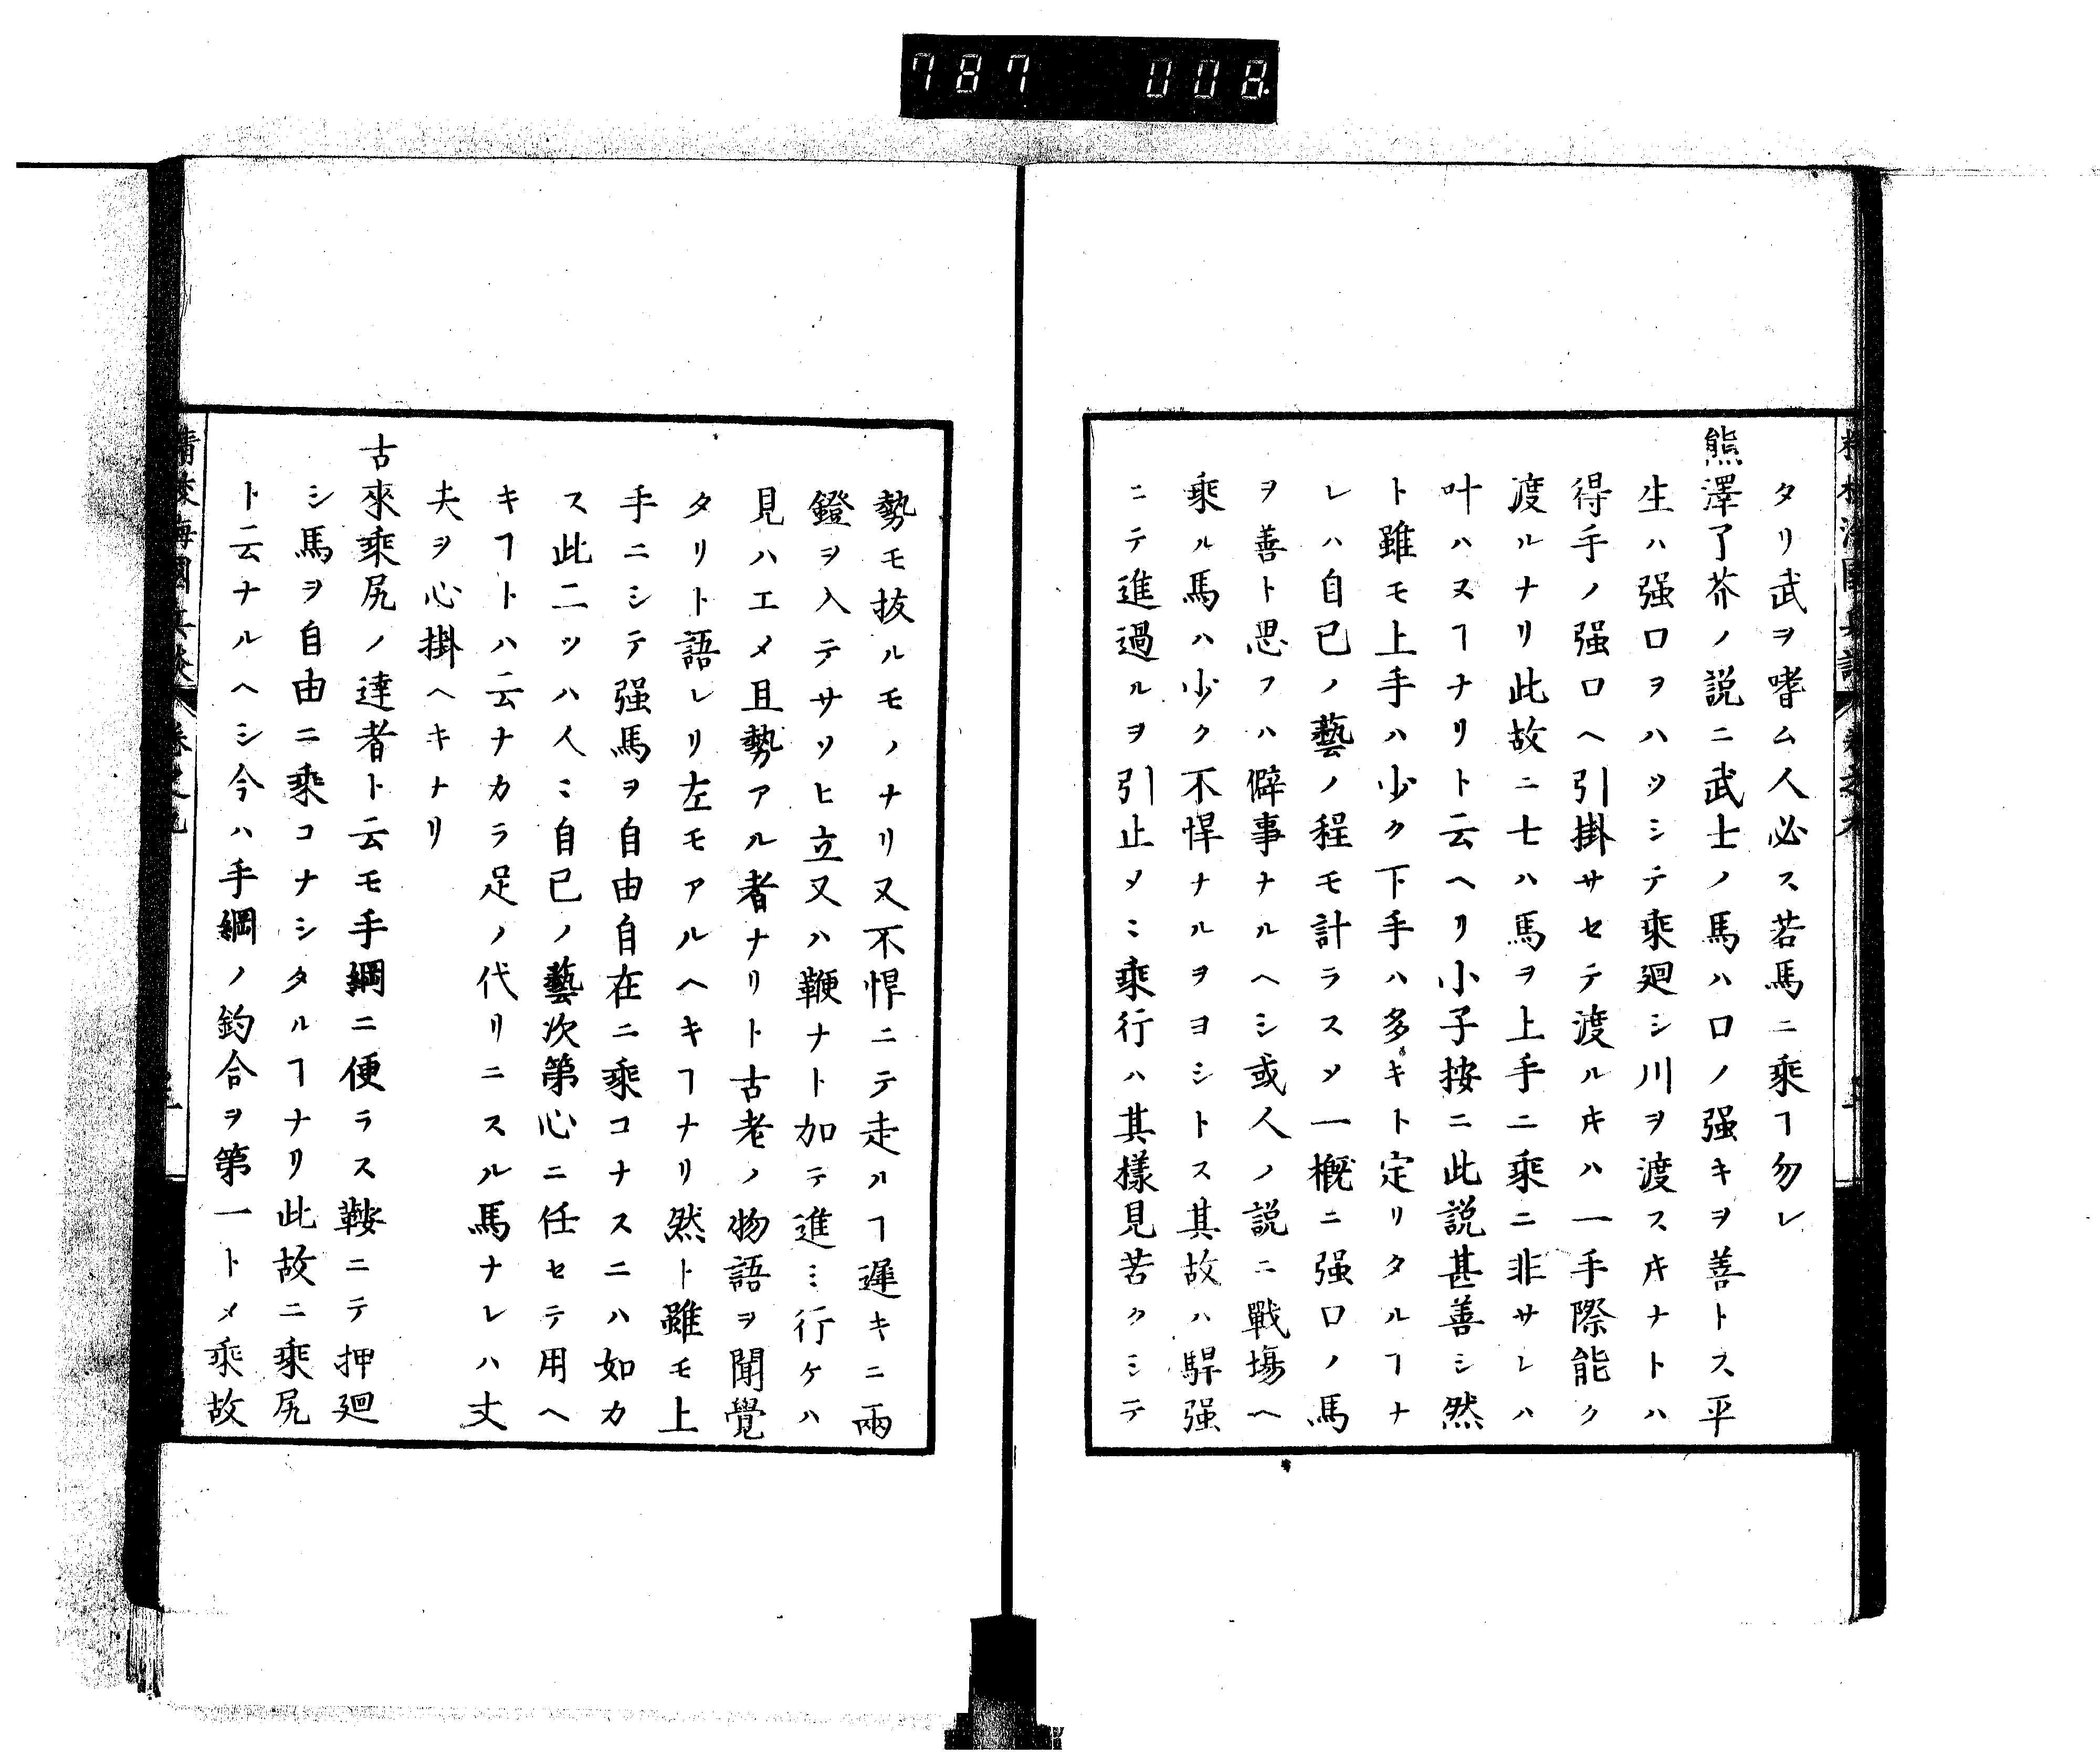 787 008
タリ武ヲ嗜ム人必ス若馬ニ乘ヿ勿レ
熊澤了芥ノ説ニ武士ノ馬ハ口ノ强キヲ善トス平
生ハ强口ヲハツシテ乘廻シ川ヲ渡スキナトハ
得手ノ强口ヘ引掛サセテ渡ルキハ一手際能ク
渡ルナリ此故ニ七ハ馬ヲ上手ニ乘ニ非サレハ
叶ハヌヿナリト云ヘリ小子按ニ此説甚善シ然
ト雖モ上手ハ少ク下手ハ多キト定リタルヿナ
レハ自已ノ藝ノ程モ計ラスメ一概ニ强口ノ馬
ヲ善ト思フハ僻事ナルヘシ或人ノ説ニ戰塲ヘ
乘ル馬ハ少ク不悍ナルヲヨシトス其故ハ駻强
ニテ進過ルヲ引止メミ乘行ハ其樣見苦クミテ
勢モ抜ルモノナリ又不悍ニテ走ルヿ遲キニ兩
鐙ヲ入テサソヒ立又ハ鞭ナト加テ進ミ行ケハ
見ハエメ且勢アル者ナリト古老ノ物語ヲ聞覺
タリト語レリ左モアルヘキヿナリ然ト雖モ上
手ニシテ强馬ヲ自由自在ニ乘コナスニハ如カ
ス此二ツハ人ミ自已ノ藝次第心ニ任セテ用ヘ
キヿトハ云ナカラ足ノ代リニスル馬ナレハ丈
夫ヲ心掛ヘキナリ
古來乘尻ノ達者ト云モ手綱ニ便ラス鞍ニテ押廻
シ馬ヲ自由ニ乘コナシタルヿナリ此故ニ乘尻
ト云ナルヘシ今ハ手綱ノ釣合ヲ第一トメ乘故